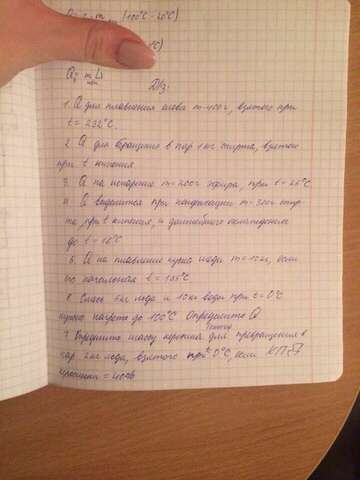 (100°C - 20°C)
°C)
Q = m L
Д/з:
1. Q для плавления олова m-400г, взятого при
t = 232°C.
2. Q для обращения в пар 1кг спирта, взятого
при t кипения.
3. Q на испарение m=200г эфира, при t = 25°C
4. Q выделится при конденсации m-500г спир-
та при t кипения, и дальнейшего охлаждения
до t = 18°C
5. Q на плавление куска меди m=10кг, если
его начальная t = 185°C
6. Смесь льда и 10кг воды при t = 0°C
нужно нагреть до 100°C Определите Q
7. Определить массу керосина для превращения в
пар 2кг льда, взятого при t 0°C, если КПД
= 40%